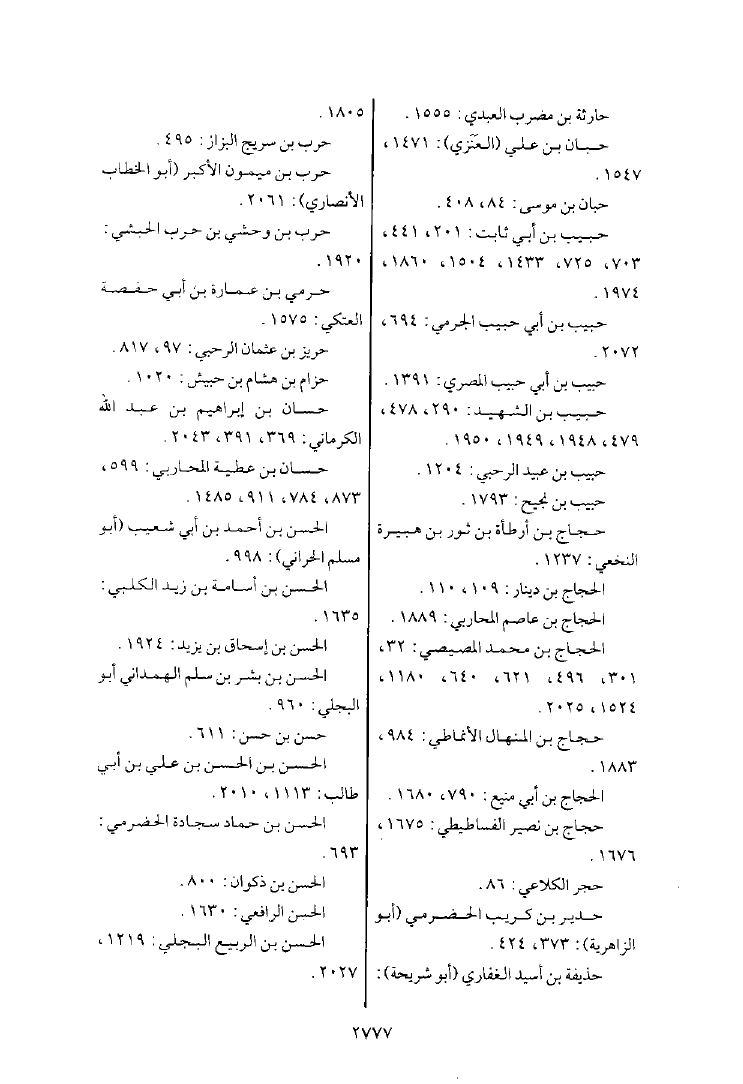 حارثة بن مضرب العبدي: ١٥٥٥ .
حبان بن علي (العنَزي): ١٤٧١،
١٥٤٧ .
حبان بن موسى: ٨٤، ٤٠٨ .
حبيب بن أبي ثابت: ٢٠١، ٤٤١،
٧٠٣، ٧٢٥، ١٤٣٣، ١٥٠٤، ١٨٦٠،
١٩٧٤ .
حبيب بن أبي حبيب الجرمي: ٦٩٤،
٢٠٧٢ .
حبيب بن أبي حبيب المصري: ١٣٩١ .
حبيب بن الشهيد: ٢٩٠، ٤٧٨،
٤٧٩، ١٩٤٨، ١٩٤٩، ١٩٥٠ .
حبيب بن عبيد الرحبي: ١٢٠٤ .
حبيب بن نجيح: ١٧٩٣ .
حجاج بن أرطأة بن ثور بن هبيرة
النخعي: ١٢٣٧ .
الحجاج بن دينار: ١٠٩، ١١٠ .
الحجاج بن عاصم المحاربي: ١٨٨٩ .
الحجاج بن محمد المصيصي: ٣٢،
٣٠١، ٤٩٦، ٦٢١، ٦٤٠، ١١٨٠،
١٥٢٤، ٢٠٢٥ .
حجاج بن المنهال الأنماطي: ٩٨٤،
١٨٨٣ .
الحجاج بن أبي منيع: ٧٩٠، ١٦٨٠ .
حجاج بن نصير الفساطيطي: ١٦٧٥،
١٦٧٦ .
حجر الكلاعي: ٨٦ .
حدير بن كريب الحضرمي (أبو
الزاهرية): ٣٧٣، ٤٢٤ .
حذيفة بن أسيد الغفاري (أبو شريحة):
١٨٠٥ .
حرب بن سريج البزاز: ٤٩٥ .
حرب بن ميمون الأكبر (أبو الخطاب
الأنصاري): ٢٠٦١ .
حرب بن وحشي بن حرب الحبشي:
١٩٢٠ .
حرمي بن عمارة بن أبي حفصة
العتكي: ١٥٧٥ .
حريز بن عثمان الرحبي: ٩٧، ٨١٧ .
حزام بن هشام بن حبيش: ١٠٢٠ .
حسان بن إبراهيم بن عبد الله
الكرماني: ٣٦٩، ٣٩١، ٢٠٤٣ .
حسان بن عطية المحاربي: ٥٩٩،
٨٧٣، ٧٨٤، ٩١١، ١٤٨٥ .
الحسن بن أحمد بن أبي شعيب (أبو
مسلم الحراني): ٩٩٨ .
الحسن بن أسامة بن زيد الكلبي:
١٦٣٥ .
الحسن بن إسحاق بن يزيد: ١٩٢٤ .
الحسن بن بشر بن سلم الهمداني أبو
البجلي: ٩٦٠ .
حسن بن حسن: ٦١١ .
الحسن بن الحسن بن علي بن أبي
طالب: ١١١٣، ٢٠١٠ .
الحسن بن حماد سجادة الحضرمي:
٦٩٣ .
الحسن بن ذكوان: ٨٠٠ .
الحسن الرافعي: ١٦٣٠ .
الحسن بن الربيع البجلي: ١٢١٩،
٢٠٢٧ .
٢٧٧٧